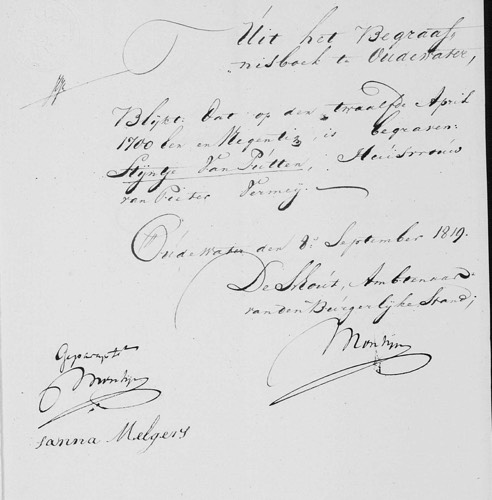 Uit het Begraaf,
nisboek te Oudewater,
Blijkt: Dat op den twaalfde April
1700 Een en Negentig, is begraven:
Stijntje Van Putten, Huisvrouw
van Pieter Vermeij.
Oudewater den 8e September 1819.
De Schout, Ambtenaar
van den Burgerlijke Stand,
Montijn
Geparapht
Montijn
sanna Melgers